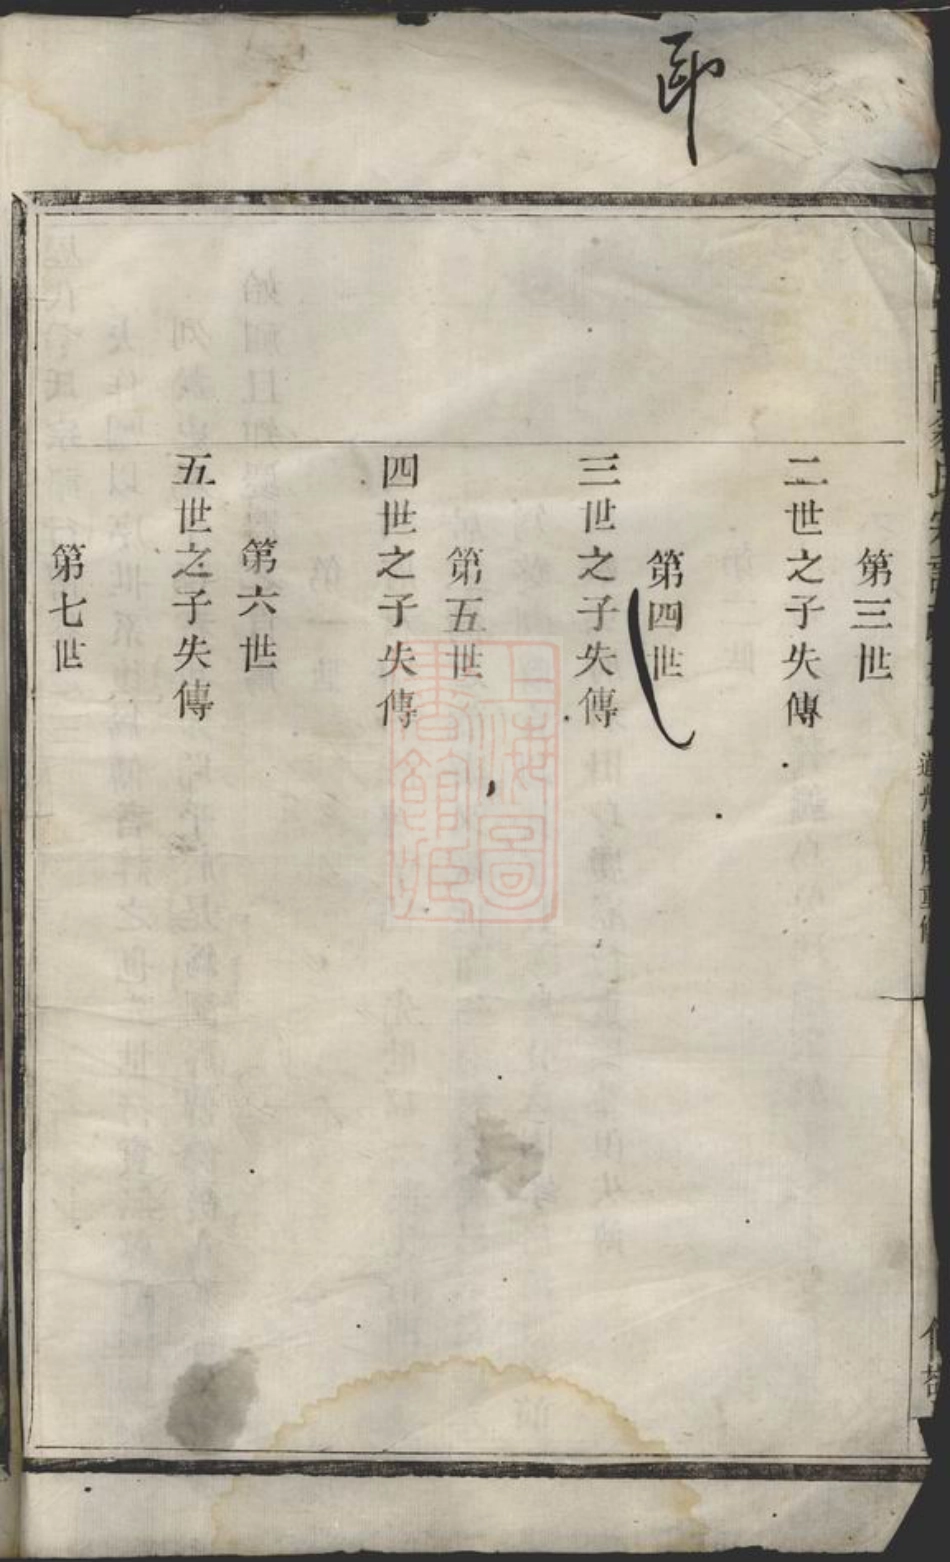 第三世
二世之子失傳
第四世
三世之子失傳
第五世
四世之子失傳
第六世
五世之子失傳
第七世
上海圖書館藏